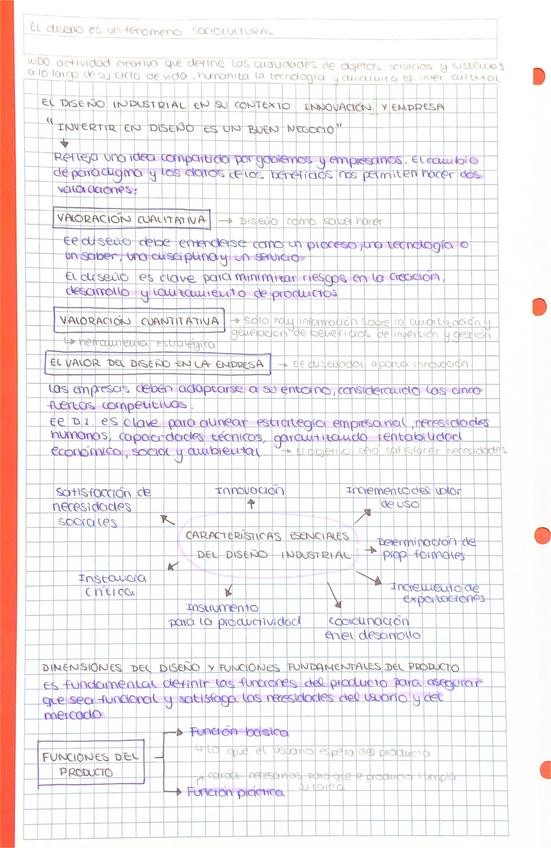 El diseño es un fenómeno sociocultural
WDO actividad creativa que define las cualidades de objetos, servicios y sistemas
a lo largo de su ciclo de vida, humaniza la tecnología y es inter cultural
EL DISEÑO INDUSTRIAL EN SU CONTEXTO INNOVACIÓN Y EMPRESA
"INVERTIR EN DISEÑO ES UN BUEN NEGOCIO"
Refleja una idea compartida por gobiernos y empresarios. El cambio
de paradigma y los datos de los beneficios nos permiten hacer dos
valoraciones:
VALORACIÓN CUALITATIVA → Diseño como saber hacer
El diseño debe entenderse como un proceso, una tecnología o
un saber, una disciplina y un servicio.
El diseño es clave para minimizar riesgos en la creación,
desarrollo y lanzamiento de productos
VALORACIÓN CUANTITATIVA → Solo hay información sobre la cuantificación y
generación de beneficios de inversión y gestión
↳ herramienta estratégica
EL VALOR DEL DISEÑO EN LA EMPRESA → El diseñador aporta innovación
Las empresas deben adaptarse a su entorno, considerando las cinco
fuerzas competitivas.
El D.I. es clave para alinear estrategia empresarial, necesidades
humanas, capacidades técnicas, garantizando rentabilidad
económica, social y ambiental → El objetivo satisfacer necesidades
Satisfacción de
necesidades
sociales
Innovación
Incremento del valor
de uso
CARACTERÍSTICAS ESENCIALES
DEL DISEÑO INDUSTRIAL
Determinación de
prop. formales
Instancia
crítica
Incremento de
exportaciones
Instrumento
para la productividad
Coordinación
en el desarrollo
DIMENSIONES DEL DISEÑO Y FUNCIONES FUNDAMENTALES DEL PRODUCTO
Es fundamental definir las funciones del producto para asegurar
que sea funcional y satisfaga las necesidades del usuario y del
mercado
Función básica
↳ Lo que el usuario espera del producto
FUNCIONES DEL
PRODUCTO
caract. necesarias para que el producto cumpla
su tarea
Función práctica